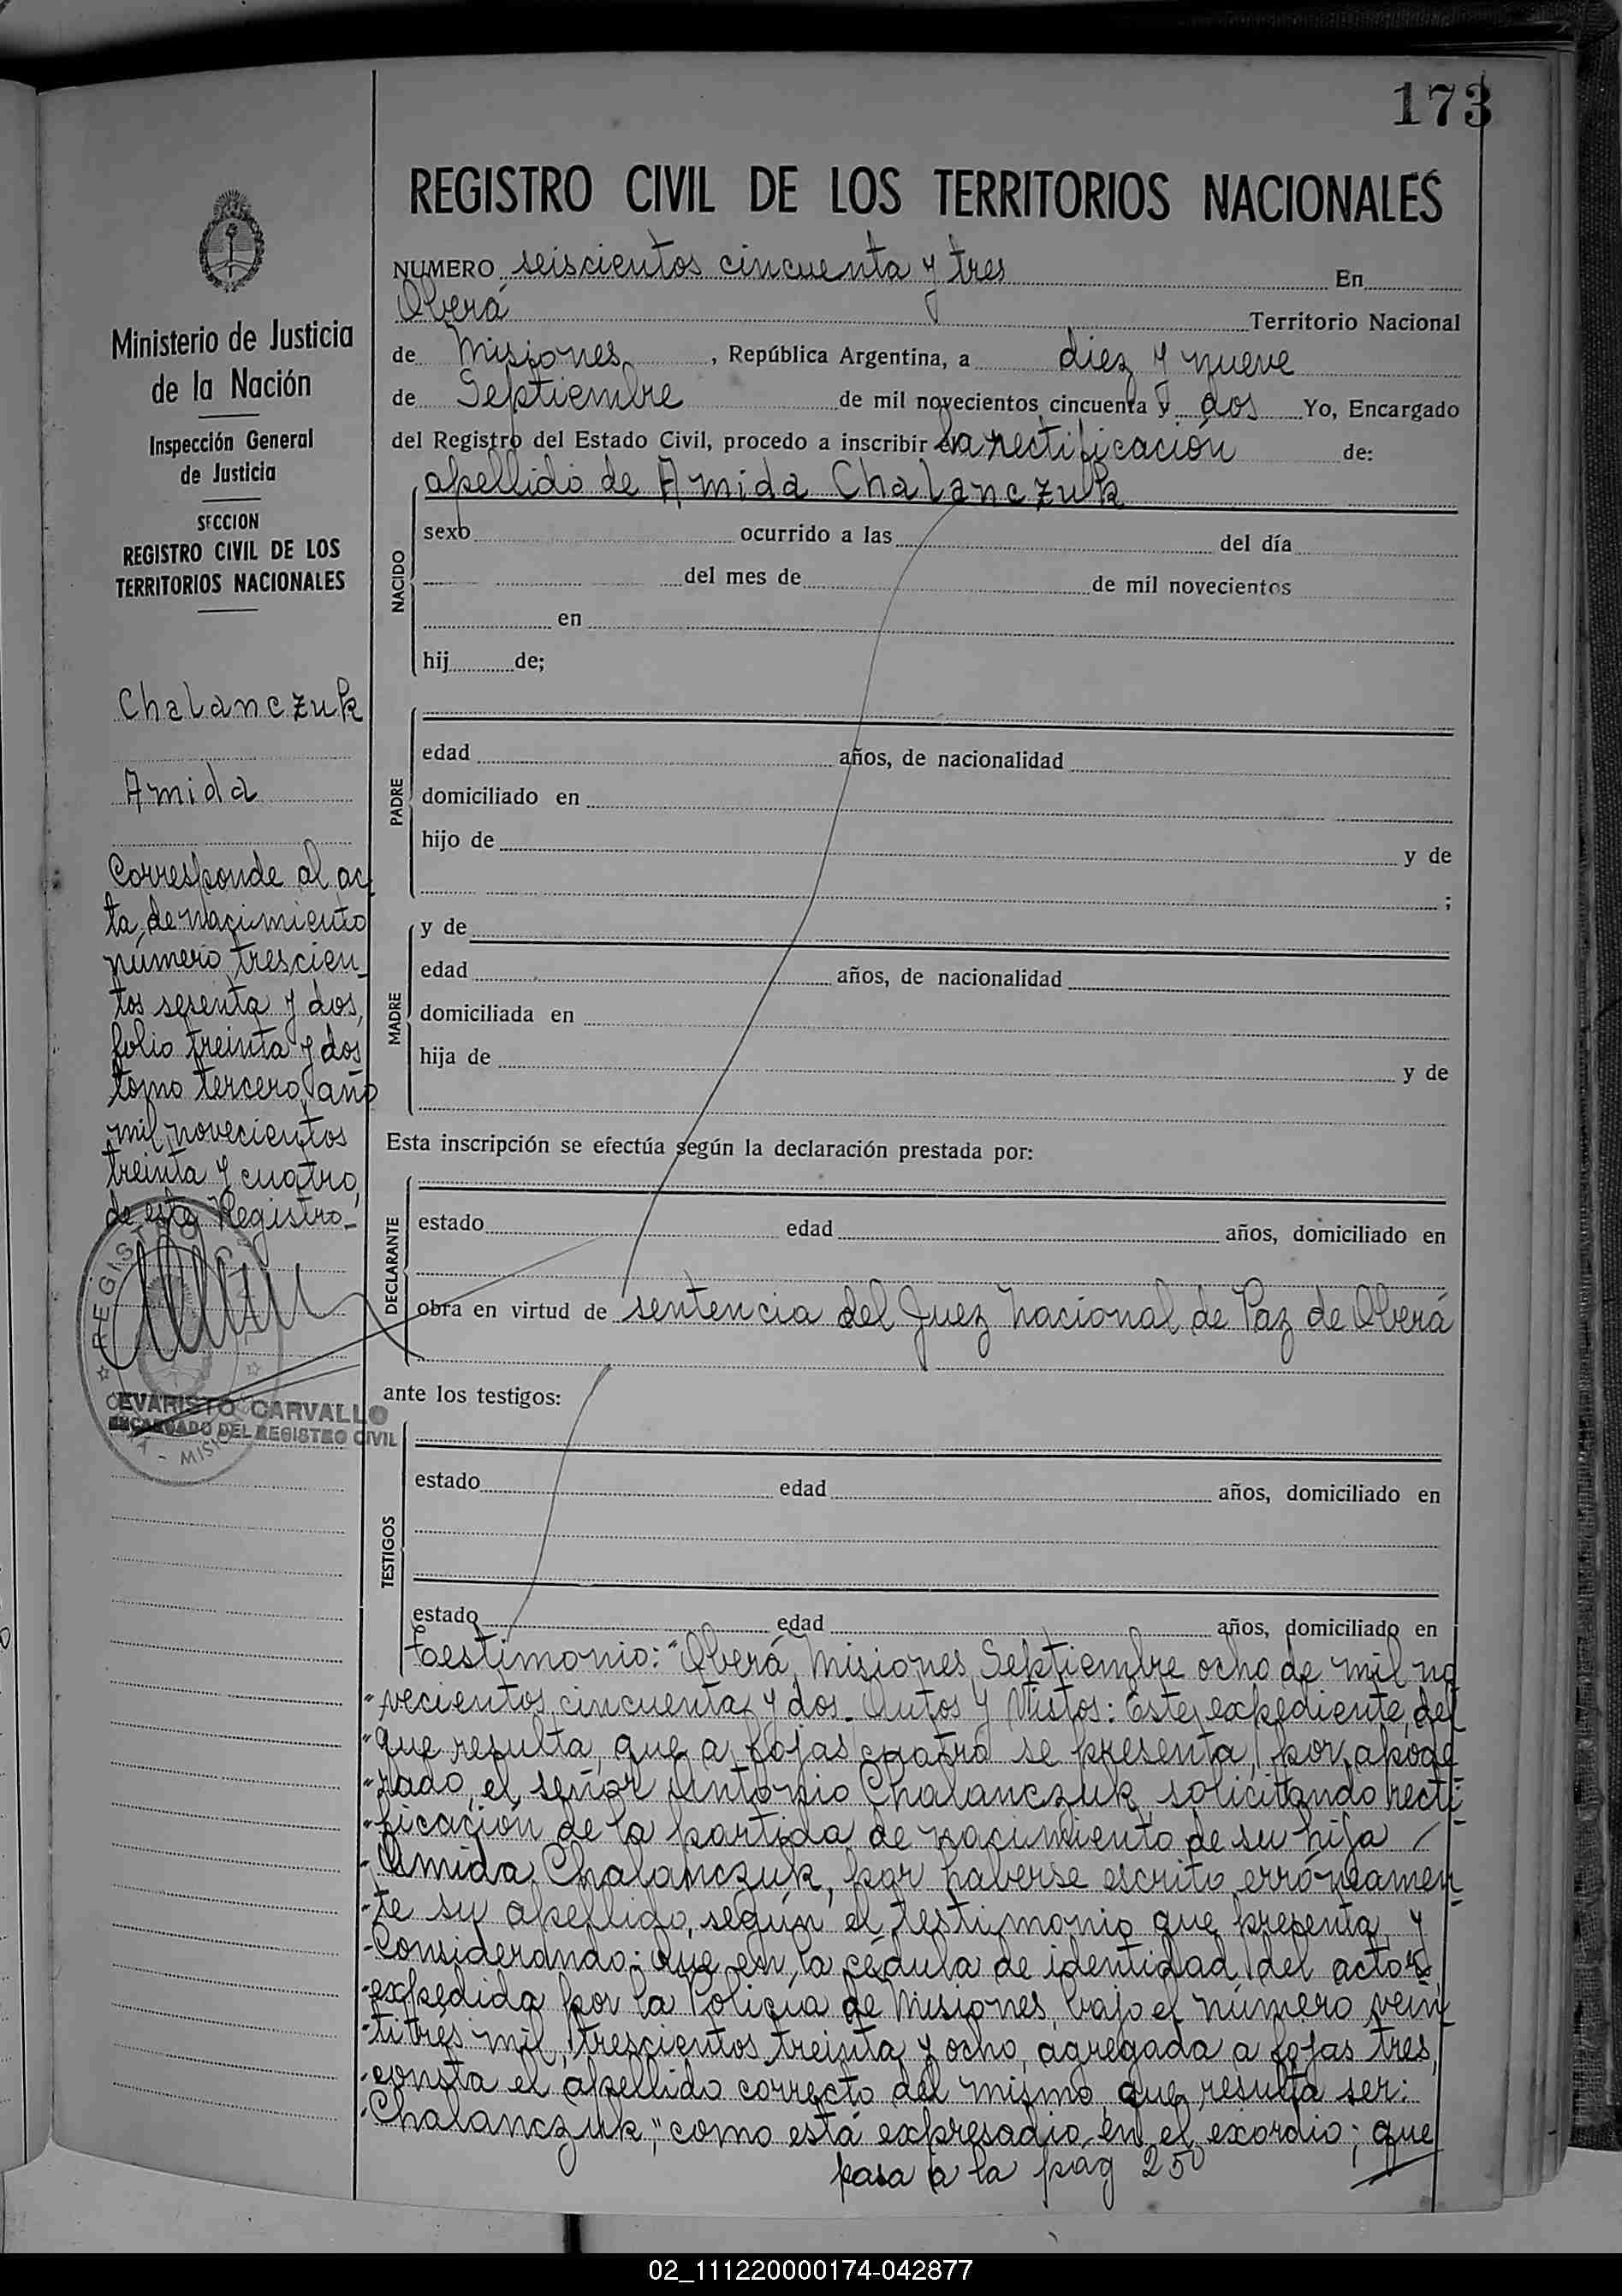 173
REGISTRO CIVIL DE LOS TERRITORIOS NACIONALES
Ministerio de Justicia
de la Nación
Inspección General
de Justicia
SECCION
REGISTRO CIVIL DE LOS
TERRITORIOS NACIONALES
Chalanczuk
Amida
Corresponde al ac
ta de nacimiento
número trescien_
tos sesenta y dos,
folio treinta y dos
tomo tercero, año
mil novecientos
treinta y cuatro,
de este Registro._
REGISTRO
EVARISTO CARVALLO
ENCARGADO DEL REGISTRO CIVIL
NUMERO seiscientos cincuenta y tres En
Oberá Territorio Nacional
de Misiones, República Argentina, a diez y nueve
de Septiembre de mil novecientos cincuenta y dos Yo, Encargado
del Registro del Estado Civil, procedo a inscribir la rectificación de:
apellido de Amida Chalanczuk
NACIDO
sexo ocurrido a las del día
del mes de de mil novecientos
en
hij de;
PADRE
edad años, de nacionalidad
domiciliado en
hijo de y de
;
MADRE
y de
edad años, de nacionalidad
domiciliada en
hija de y de
Esta inscripción se efectúa según la declaración prestada por:
DECLARANTE
estado edad años, domiciliado en
obra en virtud de sentencia del Juez Nacional de Paz de Oberá
ante los testigos:
TESTIGOS
estado edad años, domiciliado en
estado edad años, domiciliado en
testimonio: "Oberá, Misiones, Septiembre ocho de mil no
"vecientos cincuenta y dos._ Autos y Vistos: Este expediente, del
"que resulta, que a fojas cuatro se presenta, por apode
"rado, el señor Antonio Chalanczuk, solicitando recti-
"ficación de la partida de nacimiento de su hija
"Amida Chalanczuk, por haberse escrito erróneamen
"te su apellido, según el testimonio que presenta, y
"Considerando: Que en la cédula de identidad del actor,
"expedida por la Policía de Misiones, bajo el número vein
"titrés mil trescientos treinta y ocho, agregada a fojas tres,
"consta el apellido correcto del mismo, que resulta ser:
"Chalanczuk," como está expresado en el exordio; que
pasa a la pág 250
02_111220000174-042877